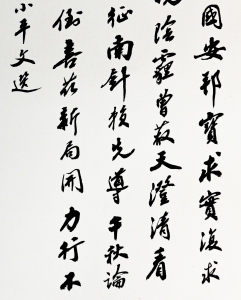 國安邦寶求實復求
陰霾曾蔽天澄清看
征南針 先導千秋論
喜茲新局開力行不
小平文選